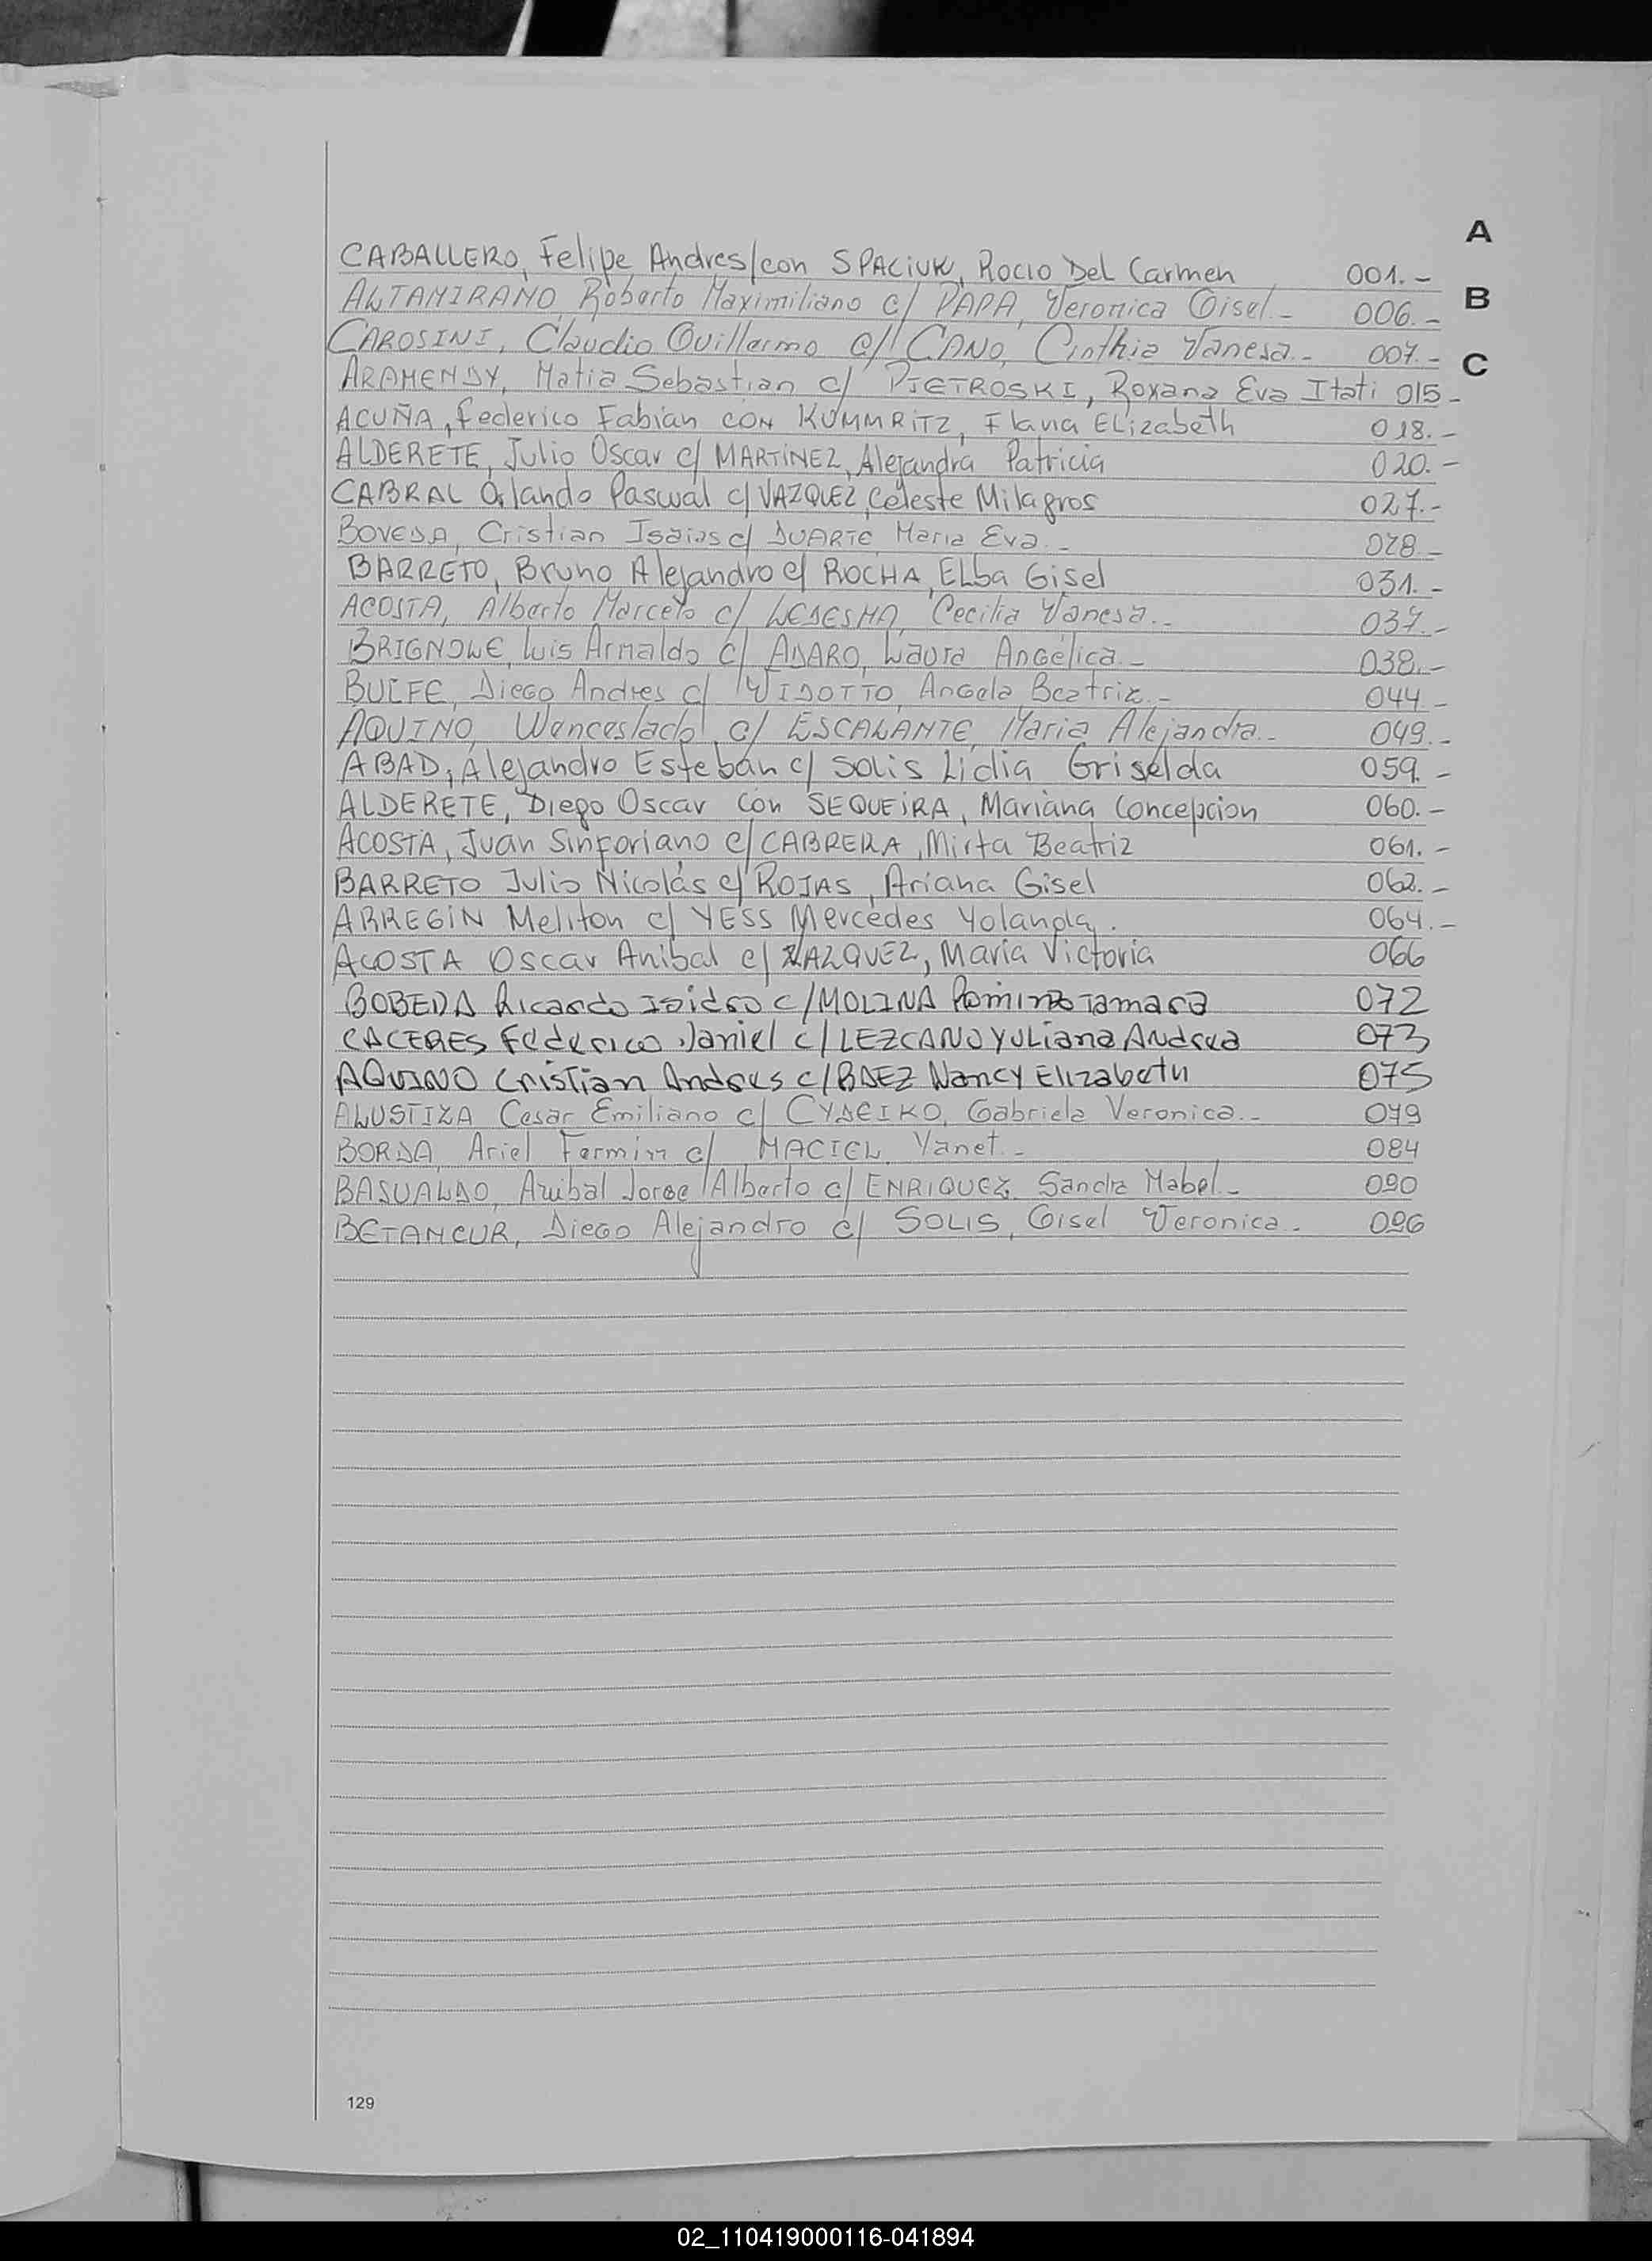 A
CABALLERO, Felipe Andres/con SPACIUK, Rocio Del Carmen 001.-
B
ALTAMIRANO, Roberto Maximiliano c/ PAPA, Veronica Gisel.- 006.-
CAROSINI, Claudio Guillermo c/ CANO, Cinthia Vanesa.- 007.-
C
ARAMENDY, Matia Sebastian c/ PIETROSKI, Roxana Eva Itati 015-
ACUÑA, Federico Fabian con KUMMRITZ, Flavia Elizabeth 018.-
ALDERETE, Julio Oscar c/ MARTINEZ, Alejandra Patricia 020.-
CABRAL Orlando Pascual c/ VAZQUEZ, Celeste Milagros 027.-
BOVEDA, Cristian Isaias c/ DUARTE Maria Eva.- 028.-
BARRETO, Bruno Alejandro c/ ROCHA, Elba Gisel 031.-
ACOSTA, Alberto Marcelo c/ LEDESMA, Cecilia Vanesa.- 037.-
BRIGNOLE, Luis Arnaldo c/ ADARO, Laura Angélica.- 038.-
BULFE, Diego Andres c/ WIDOTTO, Angela Beatriz.- 044.-
AQUINO, Wenceslado c/ ESCALANTE, Maria Alejandra.- 049.-
ABAD, Alejandro Esteban c/ Solis Lidia Griselda 059.-
ALDERETE, Diego Oscar con SEQUEIRA, Mariana Concepcion 060.-
ACOSTA, Juan Sinforiano c/ CABRERA, Mirta Beatriz 061.-
BARRETO Julio Nicolás c/ ROJAS, Ariana Gisel 062.-
ARREGIN Meliton c/ YESS Mercedes Yolanda. 064.-
ACOSTA Oscar Anibal c/ VAZQUEZ, Maria Victoria 066
BOBEDA Ricardo Isidro c/ MOLINA Romina Tamara 072
CACERES Federico Daniel c/ LEZCANO Yuliana Andrea 073
AQUINO Cristian Andres c/ BAEZ Nancy Elizabeth 075
ALUSTIZA Cesar Emiliano c/ CYDEIKO, Gabriela Veronica.- 079
BORDA, Ariel Fermin c/ MACIEL, Yanet.- 084
BASUALDO, Anibal Jorge Alberto c/ ENRIQUEZ, Sandra Mabel.- 090
BETANCUR, Diego Alejandro c/ SOLIS, Gisel Veronica.- 096
129
02_110419000116-041894